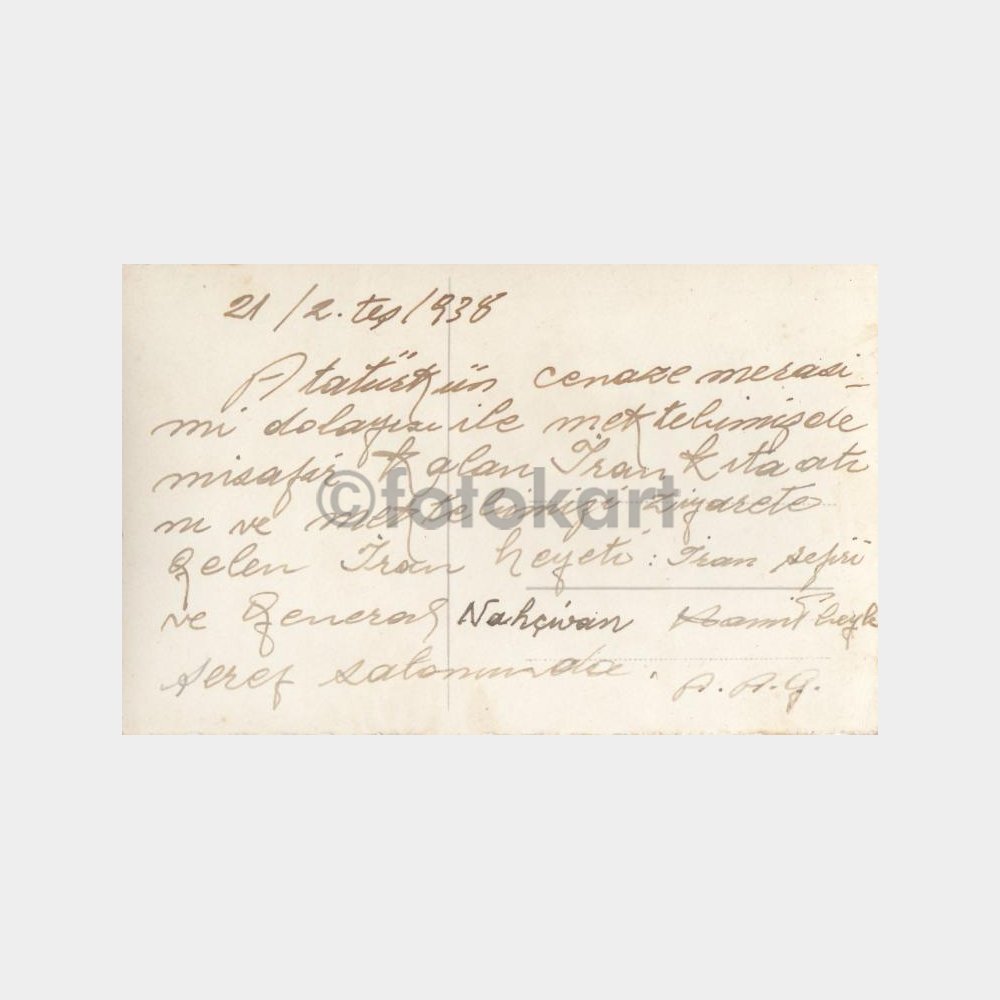 21/2.teş/938
Atatürkün cenaze merasi-
mi dolayısı ile mektebimizde
misafir kalan İran kıtaatı
nı ve mektebimizi ziyarete
gelen İran heyeti: İran sefiri
ve General Nahçivan
şeref salonunda. A.A.G.
©fotokart